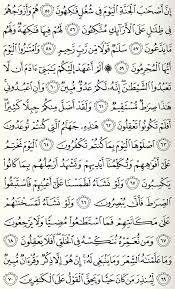 إِنَّ أَصْحَٰبَ ٱلْجَنَّةِ ٱلْيَوْمَ فِى شُغُلٍ فَٰكِهُونَ ٥٥ هُمْ وَأَزْوَٰجُهُمْ
فِى ظِلَٰلٍ عَلَى ٱلْأَرَآئِكِ مُتَّكِـُٔونَ ٥٦ لَهُمْ فِيهَا فَٰكِهَةٌ وَلَهُم
مَّا يَدَّعُونَ ٥٧ سَلَٰمٌ قَوْلًا مِّن رَّبٍّ رَّحِيمٍ ٥٨ وَٱمْتَٰزُوا۟ ٱلْيَوْمَ
أَيُّهَا ٱلْمُجْرِمُونَ ٥٩ أَلَمْ أَعْهَدْ إِلَيْكُمْ يَٰبَنِىٓ ءَادَمَ أَن لَّا
تَعْبُدُوا۟ ٱلشَّيْطَٰنَ إِنَّهُۥ لَكُمْ عَدُوٌّ مُّبِينٌ ٦٠ وَأَنِ ٱعْبُدُونِى
هَٰذَا صِرَٰطٌ مُّسْتَقِيمٌ ٦١ وَلَقَدْ أَضَلَّ مِنكُمْ جِبِلًّا كَثِيرًا
أَفَلَمْ تَكُونُوا۟ تَعْقِلُونَ ٦٢ هَٰذِهِۦ جَهَنَّمُ ٱلَّتِى كُنتُمْ تُوعَدُونَ
٦٣ ٱصْلَوْهَا ٱلْيَوْمَ بِمَا كُنتُمْ تَكْفُرُونَ ٦٤ ٱلْيَوْمَ نَخْتِمُ
عَلَىٰٓ أَفْوَٰهِهِمْ وَتُكَلِّمُنَآ أَيْدِيهِمْ وَتَشْهَدُ أَرْجُلُهُم بِمَا كَانُوا۟
يَكْسِبُونَ ٦٥ وَلَوْ نَشَآءُ لَطَمَسْنَا عَلَىٰٓ أَعْيُنِهِمْ فَٱسْتَبَقُوا۟
ٱلصِّرَٰطَ فَأَنَّىٰ يُبْصِرُونَ ٦٦ وَلَوْ نَشَآءُ لَمَسَخْنَٰهُمْ
عَلَىٰ مَكَانَتِهِمْ فَمَا ٱسْتَطَٰعُوا۟ مُضِيًّا وَلَا يَرْجِعُونَ
٦٧ وَمَن نُّعَمِّرْهُ نُنَكِّسْهُ فِى ٱلْخَلْقِ أَفَلَا يَعْقِلُونَ ٦٨
وَمَا عَلَّمْنَٰهُ ٱلشِّعْرَ وَمَا يَنۢبَغِى لَهُۥٓ إِنْ هُوَ إِلَّا ذِكْرٌ وَقُرْءَانٌ مُّبِينٌ
٦٩ لِّيُنذِرَ مَن كَانَ حَيًّا وَيَحِقَّ ٱلْقَوْلُ عَلَى ٱلْكَٰفِرِينَ ٧٠